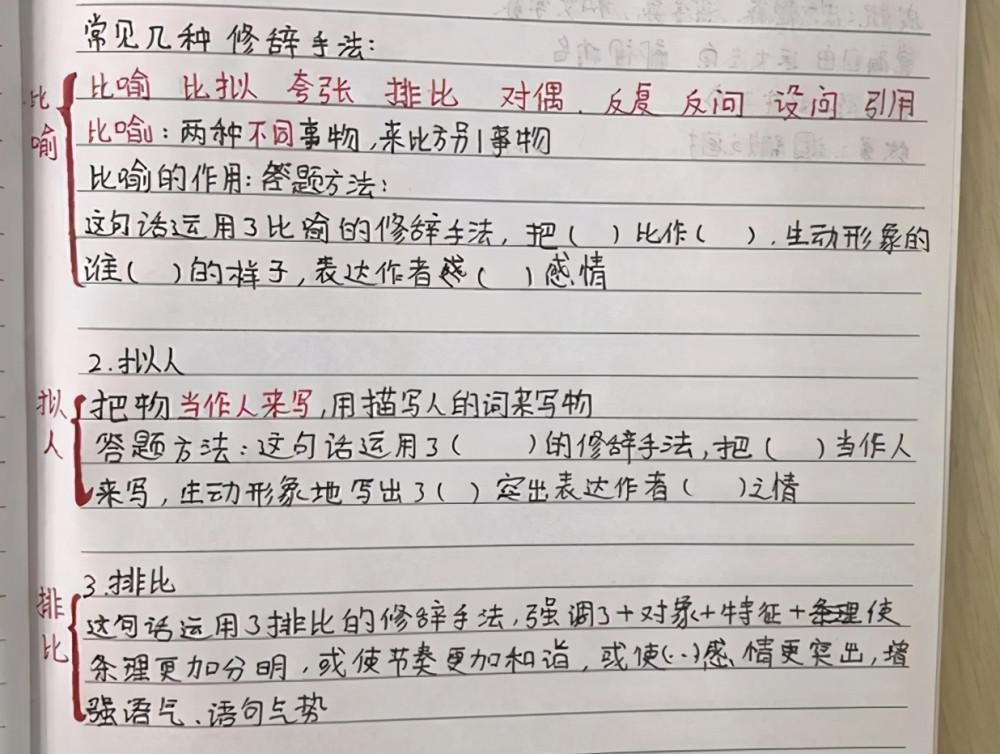 常见几种修辞手法：
比喻 比拟 夸张 排比 对偶、反复 反问 设问 引用
比喻：两种不同事物，来比方另1事物
比喻的作用：答题方法：
这句话运用了比喻的修辞手法，把（ ）比作（ ），生动形象的
谁（ ）的样子，表达作者（ ）感情
比喻
2.拟人
把物当作人来写，用描写人的词来写物
答题方法：这句话运用了（ ）的修辞手法，把（ ）当作人
来写，生动形象地写出了（ ）突出表达作者（ ）之情
拟人
3.排比
这句话运用了排比的修辞手法，强调了+对象+特征+条理使
条理更加分明，或使节奏更加和谐，或使(··)感情更突出，增
强语气、语句气势
排比